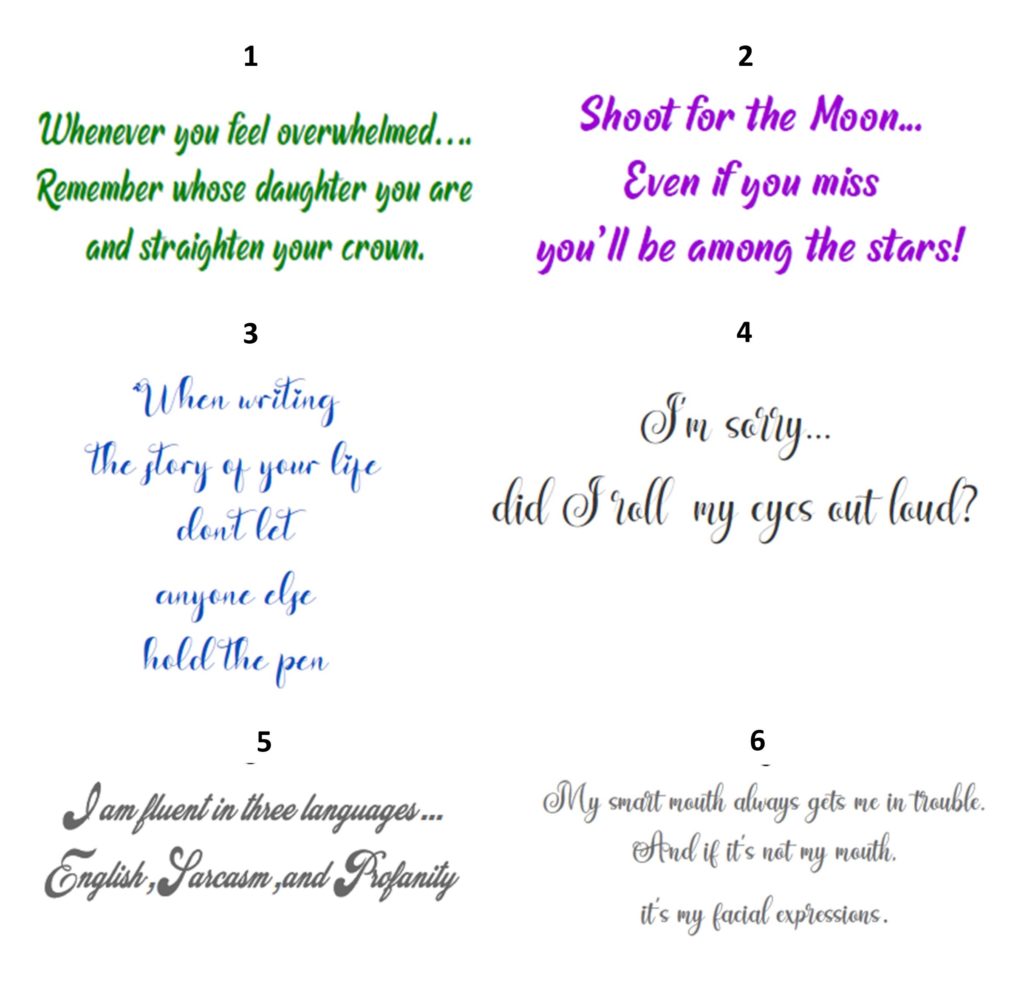 1
Whenever you feel overwhelmed....
Remember whose daughter you are
and straighten your crown.
2
Shoot for the Moon...
Even if you miss
you'll be among the stars!
3
"When writing
the story of your life
don't let
anyone else
hold the pen
4
I'm sorry...
did I roll my eyes out loud?
5
I am fluent in three languages...
English, Sarcasm, and Profanity
6
My smart mouth always gets me in trouble.
And if it's not my mouth.
it's my facial expressions.